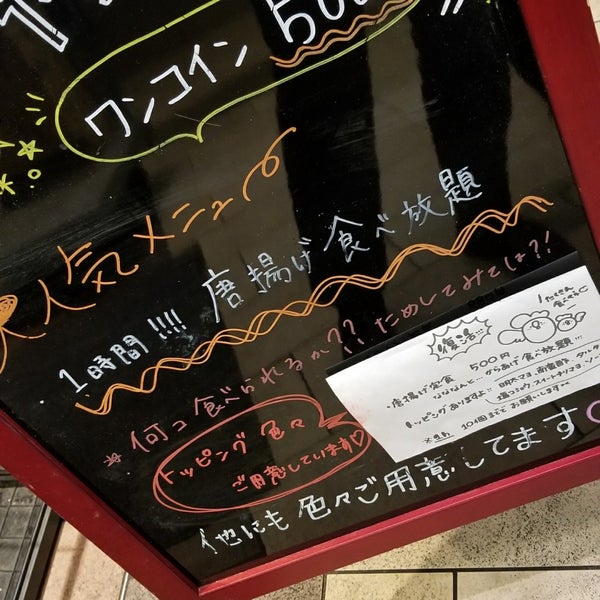 ワンコイン 500
大人気メニュー
1時間!!!! 唐揚げ食べ放題
*何コ食べられるか?? ためしてみては?!
トッピング色々
ご用意しています♡
復活!!!
たくさん
食べてね
・唐揚げ定食 500円
なななんと…からあげ食べ放題!!!
トッピングありますよ!!
10個までで お願いします
他にも色々ご用意してます